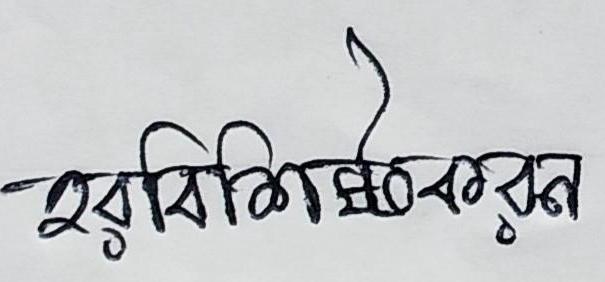 হরবিশিষ্টকরন